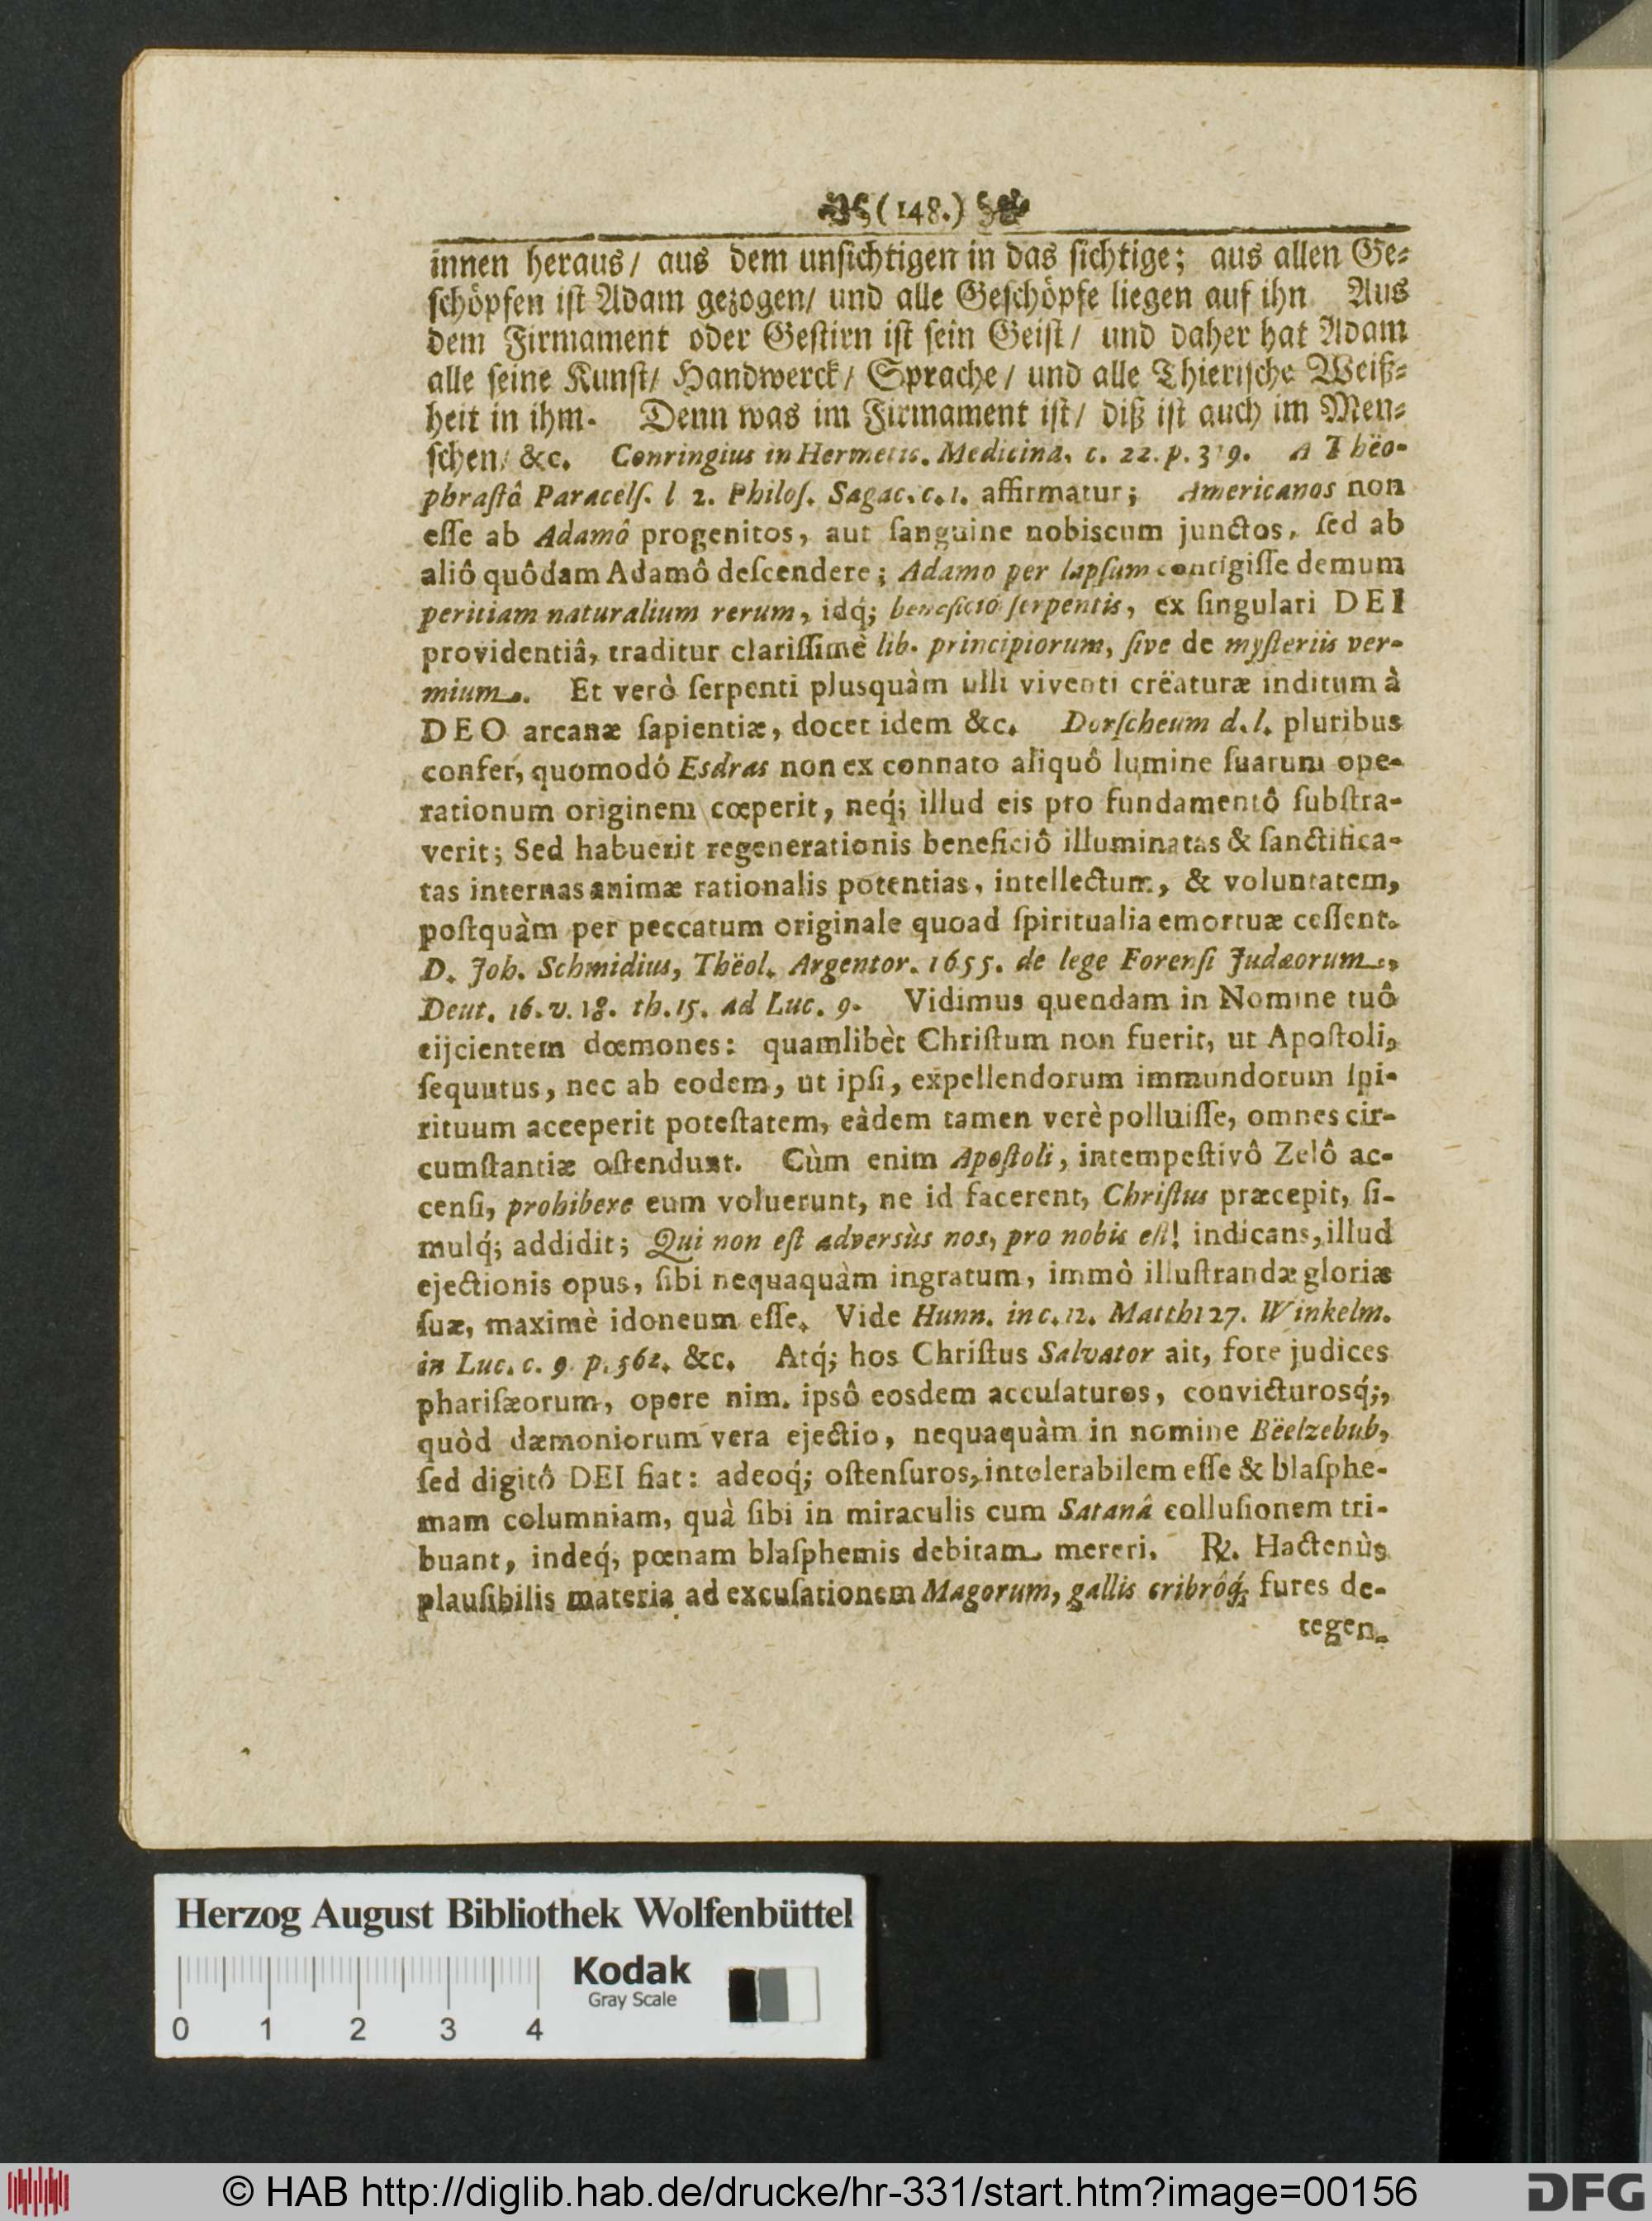 (148.)
innen heraus/ aus dem unsichtigen in das sichtige; aus allen Ge-
schöpfen ist Adam gezogen/ und alle Geschöpfe liegen auf ihn Aus
dem Firmament oder Gestirn ist sein Geist/ und daher hat Adam
alle seine Kunst/ Handwerck/ Sprache/ und alle Thierische Weiß-
heit in ihm. Denn was im Firmament ist/ diß ist auch im Men-
schen/ &c. Conringius in Hermetic. Medicina. c. 22. p. 319. A Thëo-
phraſtâ Paracelſ. l 2. Philoſ. Sagac. c. 1. affirmatur; Americanos non
eſſe ab Adamô progenitos, aut ſanguine nobiscum junctos, ſed ab
aliô quôdam Adamô deſcendere; Adamo per lapſum contigiſſe demum
peritiam naturalium rerum, idq́; beneficiô ſerpentis, ex ſingulari DEI
providentiâ, traditur clariſſimè lib. principiorum, ſive de myſteriis ver-
mium. Et verò ſerpenti plusquàm ulli viventi crëaturæ inditum à
DEO arcanæ ſapientiæ, docet idem &c. Dorſcheum d. l. pluribus
confer, quomodô Esdras non ex connato aliquô lumine ſuarum ope-
rationum originem cœperit, neq́; illud eis pro fundamentô ſubſtra-
verit; Sed habuerit regenerationis beneficiô illuminatas & ſanctifica-
tas internas animæ rationalis potentias, intellectum, & voluntatem,
poſtquàm per peccatum originale quoad ſpiritualia emortuæ ceſſent.
D. Joh. Schmidius, Thëol. Argentor. 1655. de lege Forenſi Judæorum,
Deut. 16. v. 18. th. 15. ad Luc. 9. Vidimus quendam in Nomine tuô
eijcientem dœmones: quamlibèt Chriſtum non fuerit, ut Apoſtoli,
ſequutus, nec ab eodem, ut ipſi, expellendorum immundorum ſpi-
rituum acceperit poteſtatem, eàdem tamen verè polluiſſe, omnes cir-
cumſtantiæ oſtendunt. Cùm enim Apoſtoli, intempeſtivô Zelô ac-
cenſi, prohibere eum voluerunt, ne id facerent, Chriſtus præcepit, ſi-
mulq́; addidit; Qui non eſt adversùs nos, pro nobis eſt! indicans, illud
ejectionis opus, ſibi nequaquàm ingratum, immò illuſtrandæ gloriæ
ſuæ, maximè idoneum eſſe. Vide Hunn. in c. 12. Matth 127. Winkelm.
in Luc. c. 9. p. 562. &c. Atq́; hos Chriſtus Salvator ait, fore judices
phariſæorum, opere nim. ipsô eosdem accuſaturos, convicturosq́;,
quòd dæmoniorum vera ejectio, nequaquàm in nomine Bëelzebub,
ſed digitô DEI fiat: adeoq́; oſtenſuros, intolerabilem eſſe & blaſphe-
mam columniam, quà ſibi in miraculis cum Satanâ colluſionem tri-
buant, indeq́; pœnam blaſphemis debitam mereri. ℞. Hactenùs
plauſibilis materia ad excuſationem Magorum, gallis cribrôq́; fures de-
tegen-
Herzog August Bibliothek Wolfenbüttel
Kodak
Gray Scale
0 1 2 3 4
© HAB http://diglib.hab.de/drucke/hr-331/start.htm?image=00156
DFG